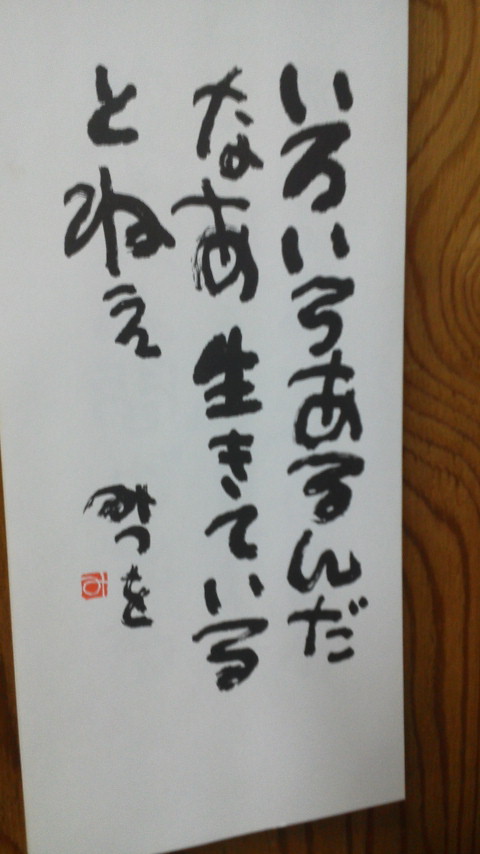 いろいろあるんだ
なあ 生きている
とねえ
みつを